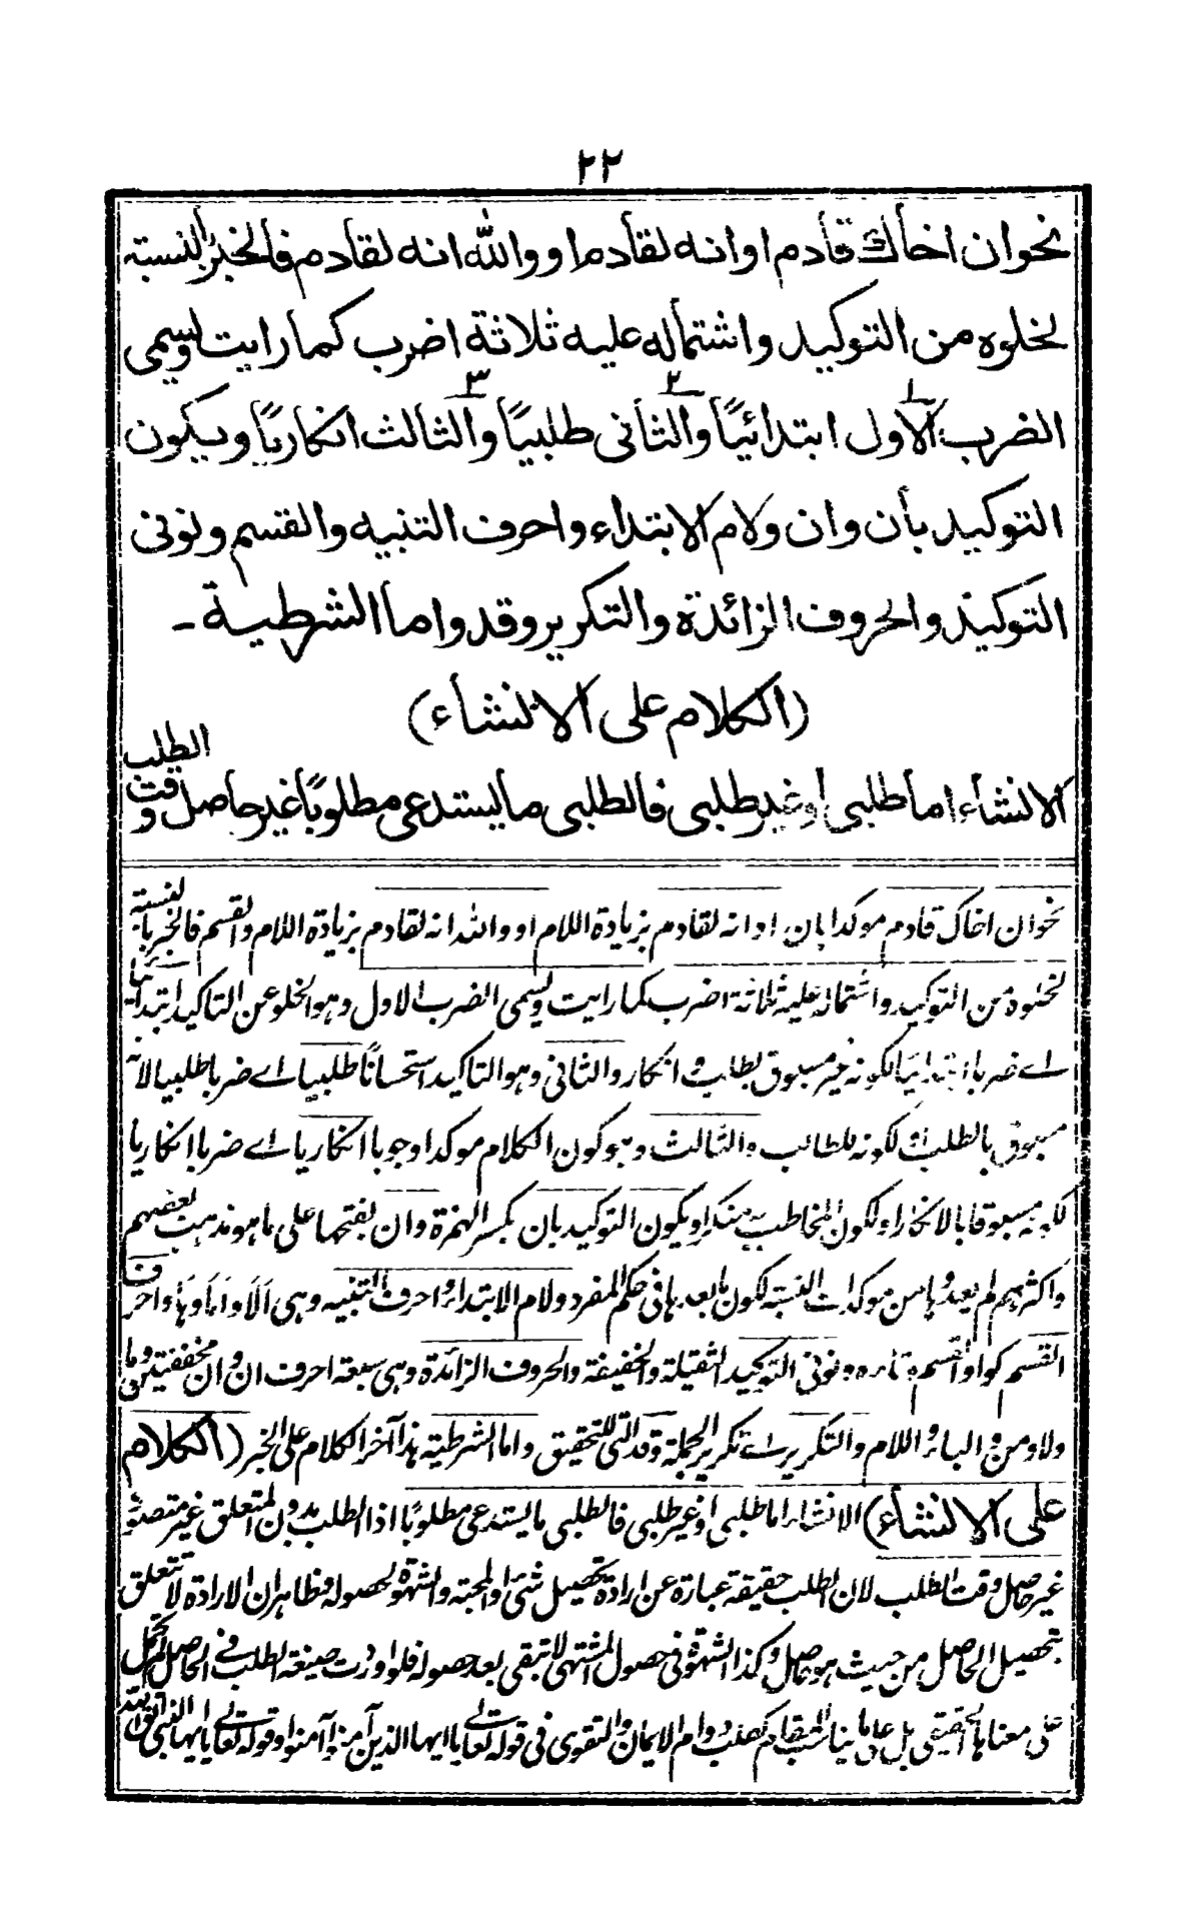 ٢٢
نحو ان اخاك قادم او انه لقادم او والله انه لقادم فالخبر بالنسبة
لخلوه من التوكيد واشتماله عليه ثلاثة اضرب كما رايت ويسمى
الضرب الاول ابتدائيًا والثانى طلبيًا والثالث انكاريًا ويكون
١ ٢ ٣
التوكيد بأن وان ولام الابتداء واحرف التنبيه والقسم ونونى
التوكيد والحروف الزائدة والتكرير وقد واما الشرطية ـ
(الكلام على الانشاء)
الانشاء اما طلبى او غير طلبى فالطلبى ما يستدعى مطلوبًا غير حاصل وقت الطلب
نحو ان اخاك قادم موكدا بان او انه لقادم بزيادة اللام او والله انه لقادم بزيادة اللام والقسم فالخبر بالنسبة
لخلوه من التوكيد واشتماله عليه ثلاثة اضرب كما رايت ويسمى الضرب الاول وهو الخلو عن التاكيد ابتدائيًا
اے ضربا ابتدائيا لكونه غير مسبوق بطلب و انكار والثانى وهو التاكيد استحسانًا طلبيا اے ضربا طلبيا لانه
مسبوق بالطلب او لكونه للطالب والثالث وهو كون الكلام موكدا وجوبا انكاريا اے ضربا انكاريا
لكونه مسبوقا بالانكار او لكون المخاطب به منكرا ويكون التوكيد بان بكسر الهمزة وان بفتحها على ما هو مذهب بعضهم
واكثرهم لم يعدوها من موكدات النسبة لكون ما بعدها فى حكم المفرد ولام الابتداء واحرف التنبيه وهى اَلَا واَمَا وهَا واحرف
القسم كواو القسم و تاءه ونونى التوكيد الثقيلة والخفيفة والحروف الزائدة وهى سبعة احرف ان وان مخففتين وما
ولا ومن والباء واللام والتكرير اے تكرير الجملة وقد التى للتحقيق واما الشرطية هذا آخر الكلام على الخبر (الكلام
على الانشاء) الانشاء اما طلبى او غير طلبى فالطلبى ما يستدعى مطلوبًا اذ الطلب بدون المتعلق غير متصور
غير حاصل وقت الطلب لان الطلب حقيقة عبارة عن ارادة تحصيل شئ او المحبة والشهوة لحصوله وظاهر ان الارادة لا تتعلق
بتحصيل الحاصل من حيث هو حاصل وكذا الشهوة فى حصول المشتهى لا تبقى بعد حصوله فلو اوردت صيغة الطلب فى الحاصل لم تحمل
على معناها الحقيقى بل على ما يناسب المقام كطلب دوام الايمان والتقوى فى قوله تعالى يا ايها الذين آمنوا آمنوا وقوله تعالى يا ايها النبى اتق الله